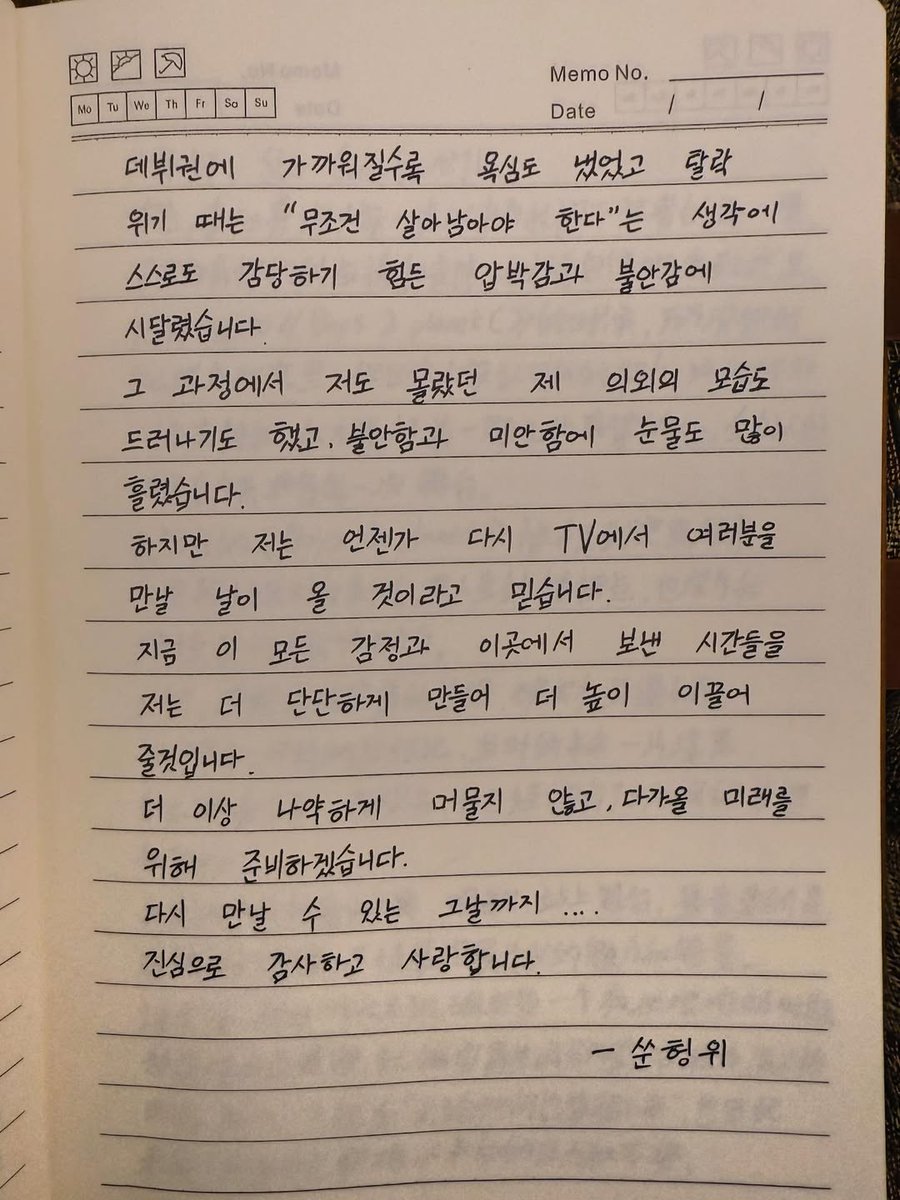 Memo No.
Mo Tu We Th Fr Sa Su
Date / /
데뷔권에 가까워질수록 욕심도 냈었고 탈락
위기 때는 “무조건 살아남아야 한다”는 생각에
스스로도 감당하기 힘든 압박감과 불안감에
시달렸습니다.
그 과정에서 저도 몰랐던 제 의외의 모습도
드러나기도 했고, 불안함과 미안함에 눈물도 많이
흘렸습니다.
하지만 저는 언젠가 다시 TV에서 여러분을
만날 날이 올 것이라고 믿습니다.
지금 이 모든 감정과 이곳에서 보낸 시간들을
저는 더 단단하게 만들어 더 높이 이끌어
줄것입니다.
더 이상 나약하게 머물지 않고, 다가올 미래를
위해 준비하겠습니다.
다시 만날 수 있는 그날까지 ....
진심으로 감사하고 사랑합니다.
- 쑨헝위